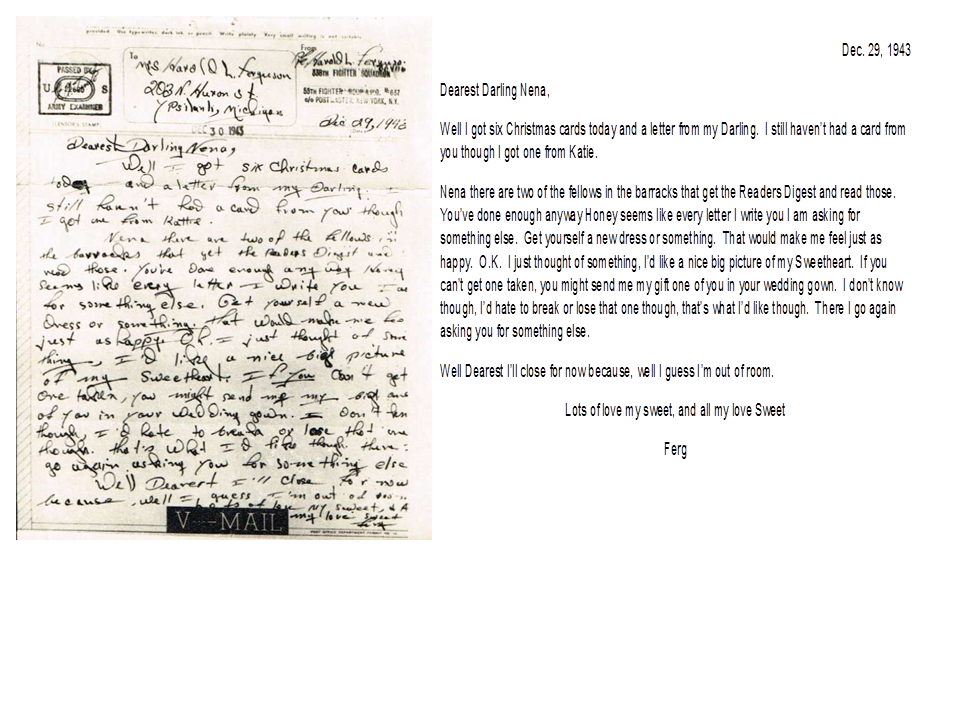 provided. Use typewriter, dark ink, or pencil. Write plainly. Very small writing is not suitable.
No.
PASSED BY
U.S.
ARMY EXAMINER
CENSOR'S STAMP
To
Mrs Harold L. Ferguson
203 N. Huron St.
Ypsilanti, Michigan
From
Harold L. Ferguson
338TH FIGHTER SQUADRON
55TH FIGHTER GROUP A.P.O. #637
c/o POSTMASTER, NEW YORK, N.Y.
Dec 29, 1943
DEC 30 1943
Dearest Darling Nena,
Well I got six Christmas cards
today and a letter from my Darling. I
still haven't had a card from you though
I got one from Katie.
Nena there are two of the fellows in
the barracks that get the Readers Digest and
read those. You've done enough any way Honey
seems like every letter I write you I am
for something else. Get yourself a new
dress or something. That would make me feel
just as happy O.K. I just thought of some
thing, I'd like a nice big picture
of my Sweetheart. If you can't get
one taken, you might send me my gift one
of you in your wedding gown. I don't know
though, I'd hate to break or lose that one
though. that's what I'd like though. there I
go again asking you for something else
Well Dearest I'll close for now
because, well I guess I'm out of room
Lots of love my sweet, & all
my love sweet
Ferg
V···—MAIL
POST OFFICE DEPARTMENT PERMIT NO.
Dec. 29, 1943
Dearest Darling Nena,
Well I got six Christmas cards today and a letter from my Darling.  I still haven't had a card from
you though I got one from Katie.
Nena there are two of the fellows in the barracks that get the Readers Digest and read those.
You've done enough anyway Honey seems like every letter I write you I am asking for
something else.  Get yourself a new dress or something.  That would make me feel just as
happy.  O.K.  I just thought of something, I'd like a nice big picture of my Sweetheart.  If you
can't get one taken, you might send me my gift one of you in your wedding gown.  I don't know
though, I'd hate to break or lose that one though, that's what I'd like though.  There I go again
asking you for something else.
Well Dearest I'll close for now because, well I guess I'm out of room.
Lots of love my sweet, and all my love Sweet
Ferg